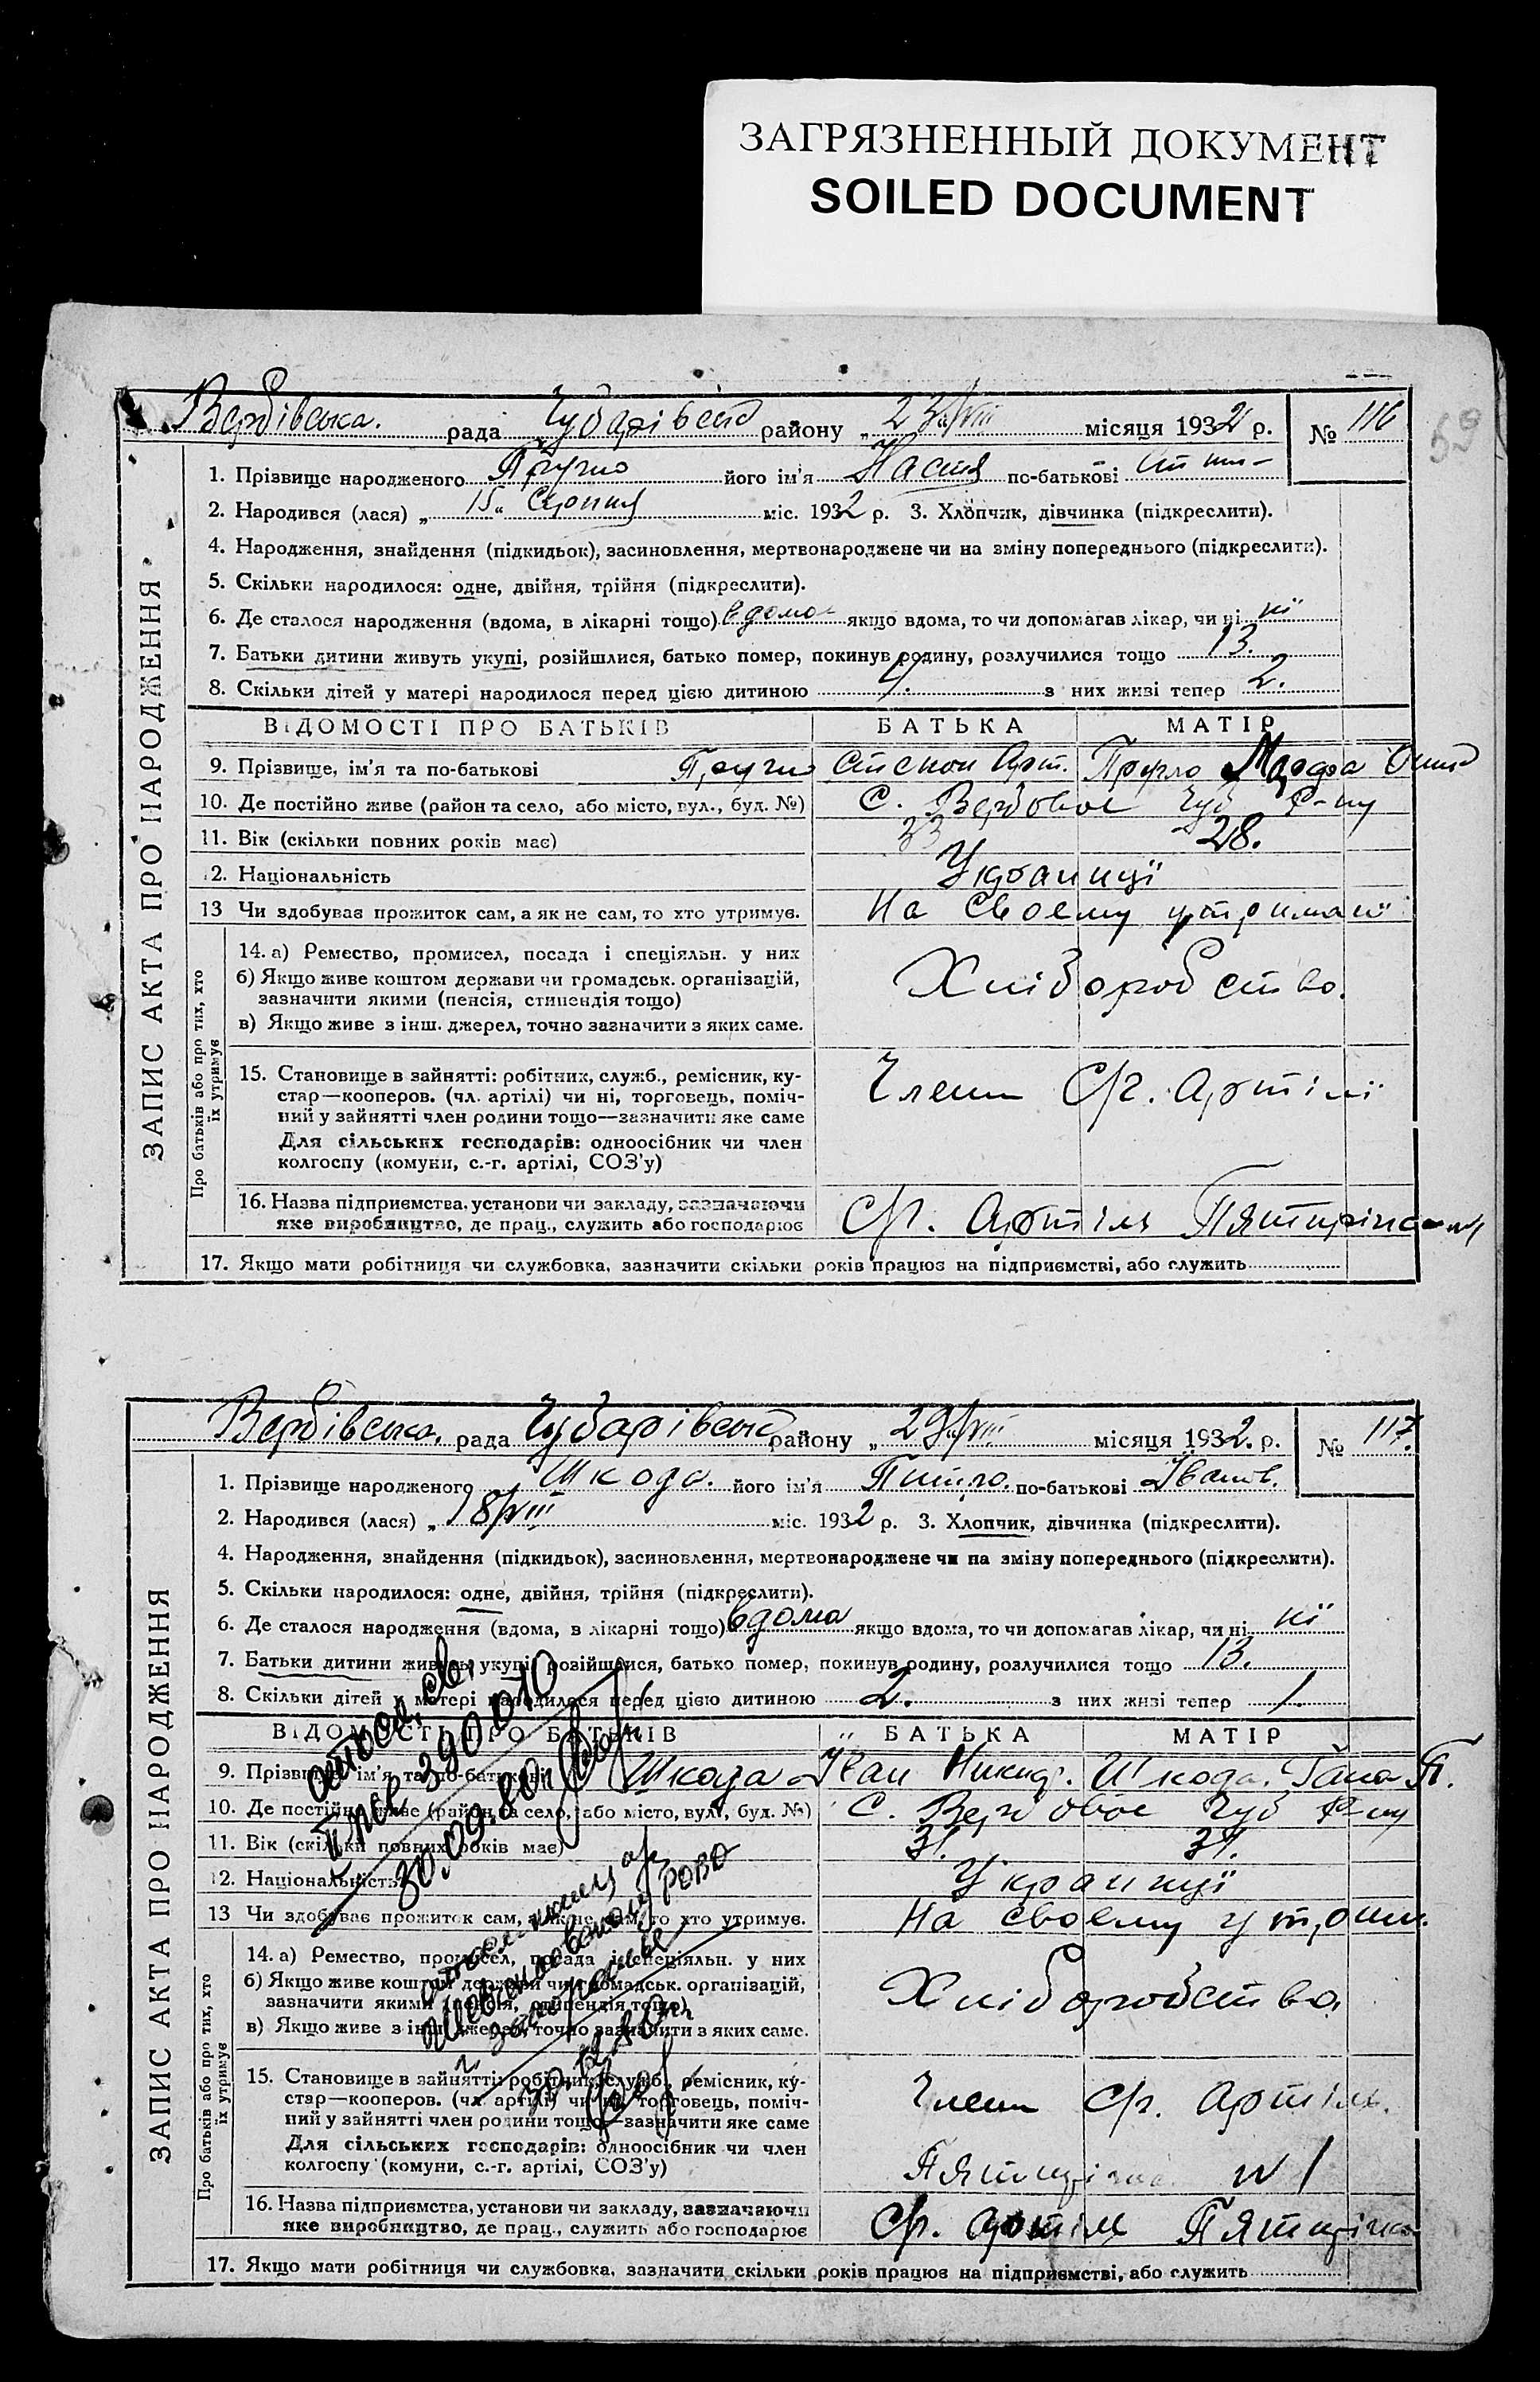 ЗАГРЯЗНЕННЫЙ ДОКУМЕНТ
SOILED DOCUMENT
59
ЗАПИС АКТА ПРО НАРОДЖЕННЯ
Вербівська рада Чубарівськ району „23/VIII місяця 1932 р. № 116
1. Прізвище народженого його ім'я Настя по-батькові
2. Народився (лася) „15“ Серпня міс. 1932 р. 3. Хлопчик, дівчинка (підкреслити).
4. Народження, знайдення (підкидьок), засиновлення, мертвонароджене чи на зміну попереднього (підкреслити).
5. Скільки народилося: одне, двійня, трійня (підкреслити).
6. Де сталося народження (вдома, в лікарні тощо) вдома якщо вдома, то чи допомагав лікар, чи ні ні
7. Батьки дитини живуть укупі, розійшлися, батько помер, покинув родину, розлучилися тощо 13.
8. Скільки дітей у матері народилося перед цією дитиною 4. з них живі тепер 2.
ВІДОМОСТІ ПРО БАТЬКІВ БАТЬКА МАТІР
9. Прізвище, ім'я та по-батькові Степан Арт. Марфа
10. Де постійно живе (район та село, або місто, вул., буд. №) С. Вербовое Чуб Р-ну
11. Вік (скільки повних років має) 33 28.
12. Національність Українці
13 Чи здобуває прожиток сам, а як не сам, то хто утримує. На своему утримані
Про батьків або про тих, хто їх утримує
14. а) Ремество, промисел, посада і спеціяльн. у них
б) Якщо живе коштом держави чи громадськ. організацій, Хліборобство.
зазначити якими (пенсія, стипендія тощо)
в) Якщо живе з інш. джерел, точно зазначити з яких саме.
15. Становище в зайнятті: робітник, служб., ремісник, ку-
стар—кооперов. (чл. артілі) чи ні, торговець, поміч- Член С/г. Артілі
ний у зайнятті член родини тощо—зазначити яке саме
Для сільських господарів: одноосібник чи член
колгоспу (комуни, с.-г. артілі, СОЗ'у)
16. Назва підприємства, установи чи закладу, зазначаючи
яке виробництво, де прац., служить або господарює С/г. Артіль Пятирічка
17. Якщо мати робітниця чи службовка, зазначити скільки років працює на підприємстві, або служить
ЗАПИС АКТА ПРО НАРОДЖЕННЯ
Вербівська. рада Чубарівськ району „29/VIII місяця 1932. р. № 117.
1. Прізвище народженого Шкода. його ім'я Петро. по-батькові Іванов.
2. Народився (лася) „18/VIII міс. 1932 р. 3. Хлопчик, дівчинка (підкреслити).
4. Народження, знайдення (підкидьок), засиновлення, мертвонароджене чи на зміну попереднього (підкреслити).
5. Скільки народилося: одне, двійня, трійня (підкреслити).
6. Де сталося народження (вдома, в лікарні тощо) вдома якщо вдома, то чи допомагав лікар, чи ні ні
7. Батьки дитини живуть укупі, розійшлися, батько помер, покинув родину, розлучилися тощо 13.
8. Скільки дітей у матері народилося перед цією дитиною 2. з них живі тепер 1.
ВІДОМОСТІ ПРО БАТЬКІВ БАТЬКА МАТІР
9. Прізвище, ім'я та по-батькові Шкода Іван Никиф. Шкода. Гана П.
10. Де постійно живе (район та село, або місто, вул., буд. №) С. Вербовое Чуб Р-ну
11. Вік (скільки повних років має) 31. 31.
12. Національність Українці
13 Чи здобуває прожиток сам, а як не сам, то хто утримує. На своему утрим.
Про батьків або про тих, хто їх утримує
14. а) Ремество, промисел, посада і спеціяльн. у них
б) Якщо живе коштом держави чи громадськ. організацій, Хліборобство.
зазначити якими (пенсія, стипендія тощо)
в) Якщо живе з інш. джерел, точно зазначити з яких саме.
15. Становище в зайнятті: робітник, служб., ремісник, ку-
стар—кооперов. (чл. артілі) чи ні, торговець, поміч- Член С/г. Артіль.
ний у зайнятті член родини тощо—зазначити яке саме
Для сільських господарів: одноосібник чи член
колгоспу (комуни, с.-г. артілі, СОЗ'у) Пятирічка №1
16. Назва підприємства, установи чи закладу, зазначаючи
яке виробництво, де прац., служить або господарює С/г. Артіль Пятирічка
17. Якщо мати робітниця чи службовка, зазначити скільки років працює на підприємстві, або служить
390010
30.09.80